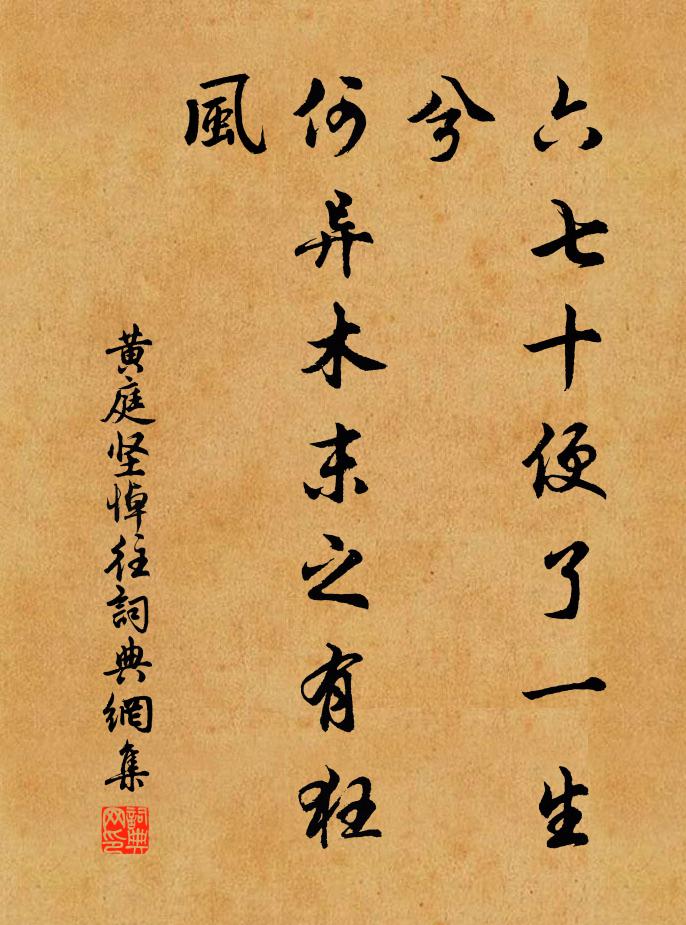 六七十便了一生
兮
何异木末之有狂
風
黄庭坚悼往詞典網集
詞典
网印